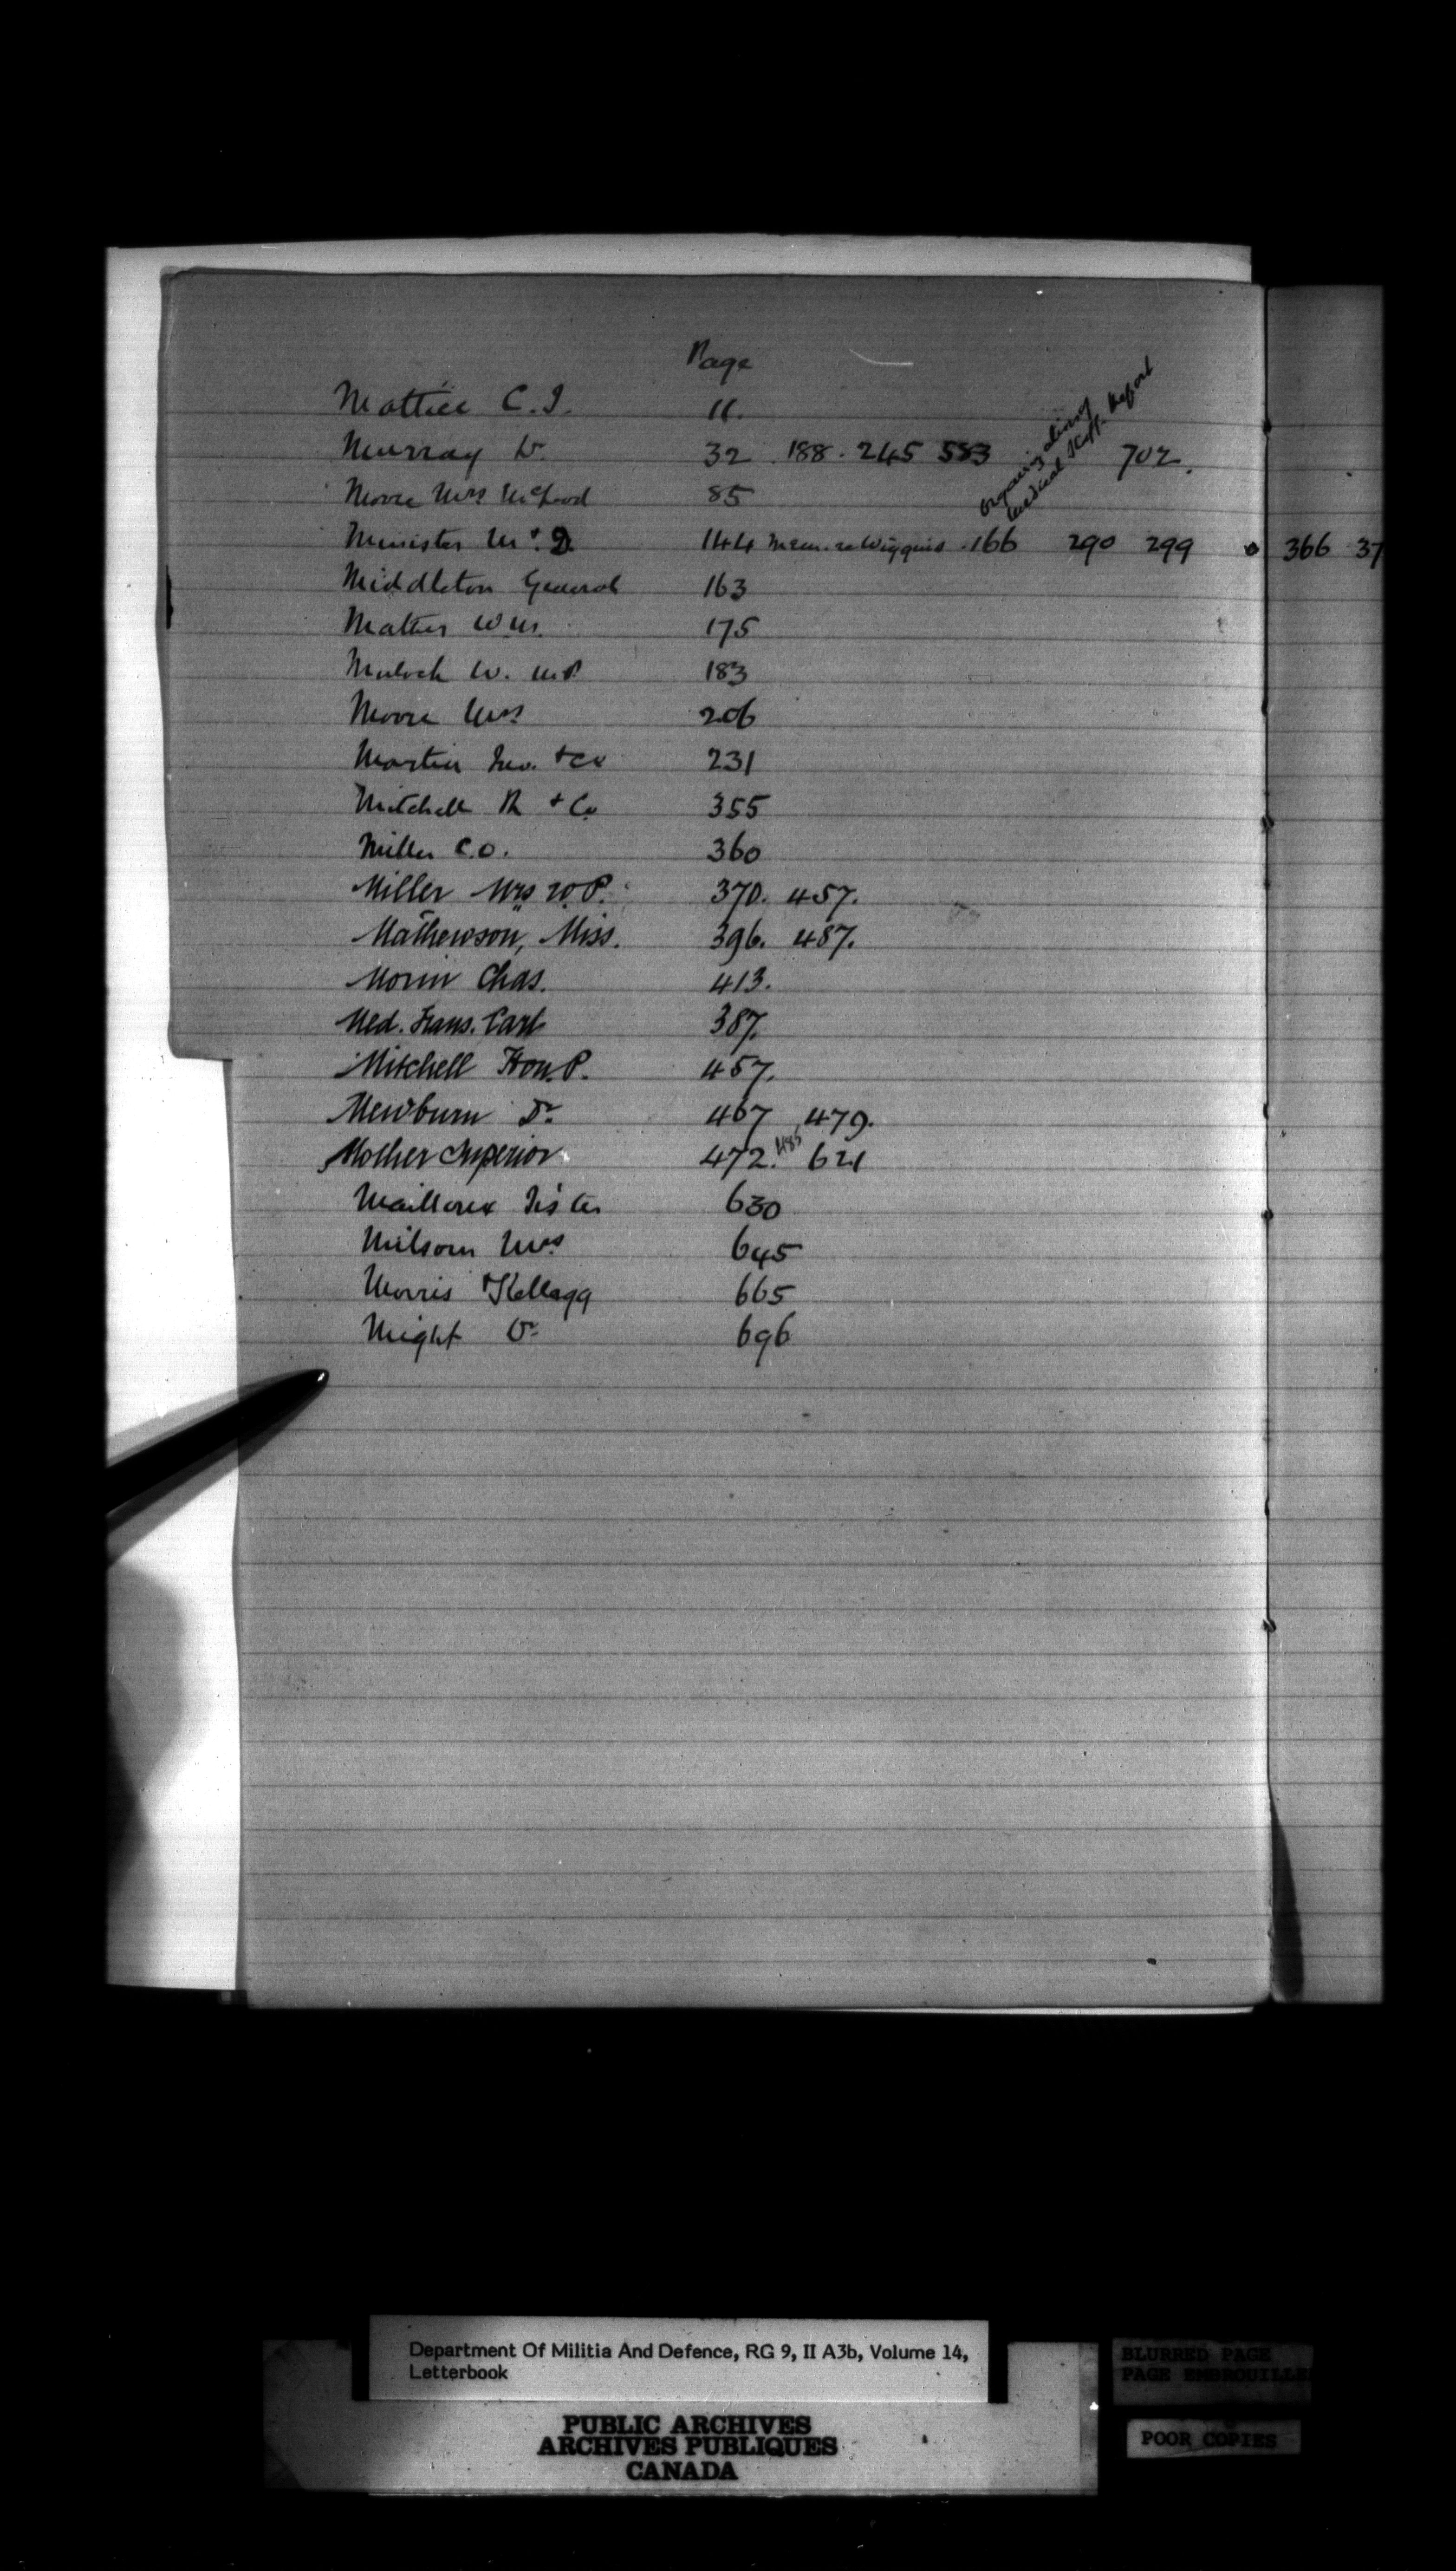 Page
Mattice C. I. 11.
Murray Dr. 32 . 188 . 245 583 702.
Moore Mrs McLeod 85
Organizating
Medical Staff. Report
Minister M. & D. 144 Mem. re Wiggins . 166 290 299 366 37
Middleton General 163
Mather Wm. 175
Mulock W. M.P. 183
Moore Mrs 206
Martin Jno. & Co 231
Mitchell R & Co 355
Miller C.O. 360
Miller Mrs W.P. 370. 457.
Mathewson, Miss. 396. 487.
Morin Chas. 413.
Med. Trans. Cart 387.
Mitchell Hon. P. 457.
Mewburn Dr 467, 479.
Mother Superior 472. 485 621
Sister 630
Milsom Mrs 645
Morris & Kellogg 665
Might Dr 696
Department Of Militia And Defence, RG 9, II A3b, Volume 14,
Letterbook
PUBLIC ARCHIVES
ARCHIVES PUBLIQUES
CANADA
BLURRED PAGE
PAGE EMBROUILLE
POOR COPIES